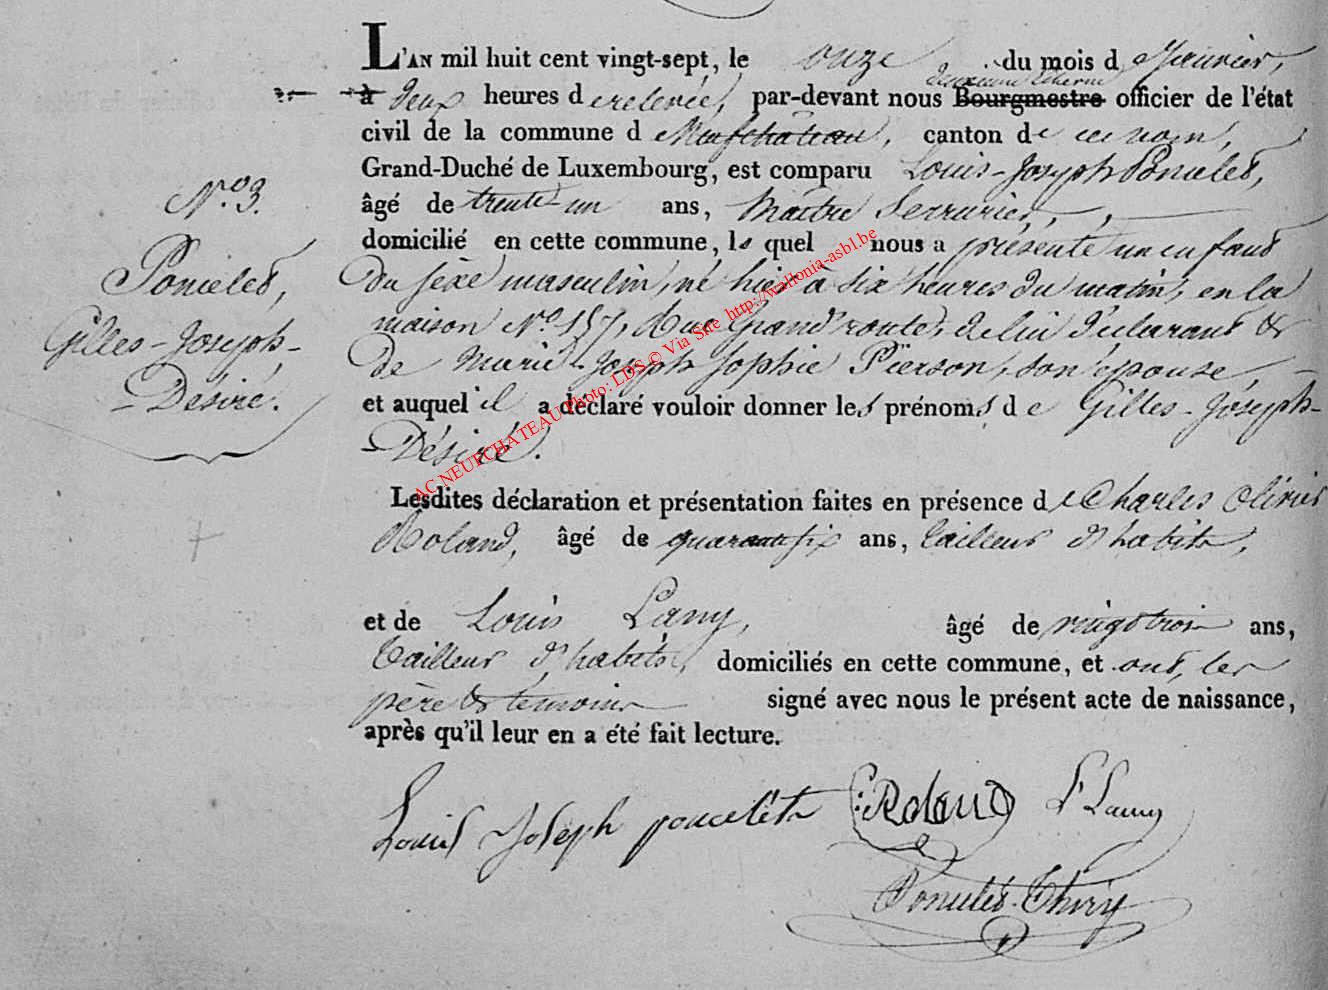 L'AN mil huit cent vingt-sept, le onze du mois de Janvier,
à deux heures de relevée, par-devant nous deuxième Echevin Bourgmestre officier de l'état
civil de la commune de Neufchateau, canton de ce nom,
Grand-Duché de Luxembourg, est comparu Louis-Joseph Poncelet,
âgé de trente-un ans, Maître Serrurier,
domicilié en cette commune, lequel nous a présenté un enfant
du sèxe masculin, né hier à six heures du matin, en la
maison N.o 157, Rue Grand'route, de lui déclarant &
de Marie-Joseph Sophie Pierson, son épouse,
et auquel il a déclaré vouloir donner les prénoms de Gilles-Joseph-
Désiré.
N.o 3.
Poncelet,
Gilles-Joseph-
Désiré.
Lesdites déclaration et présentation faites en présence de Charles Olivier
Roland, âgé de quarante six ans, tailleur d'habits,
et de Louis Lamy, âgé de vingt trois ans,
tailleur d'habits, domiciliés en cette commune, et ont, les
père & temoins signé avec nous le présent acte de naissance,
après qu'il leur en a été fait lecture.
Louis Joseph poncelet C: Roland L Lamy
Poncelet-Thiry
AC NEUFCHATEAU Photo: LDS © Via Site http://wallonia-asbl.be